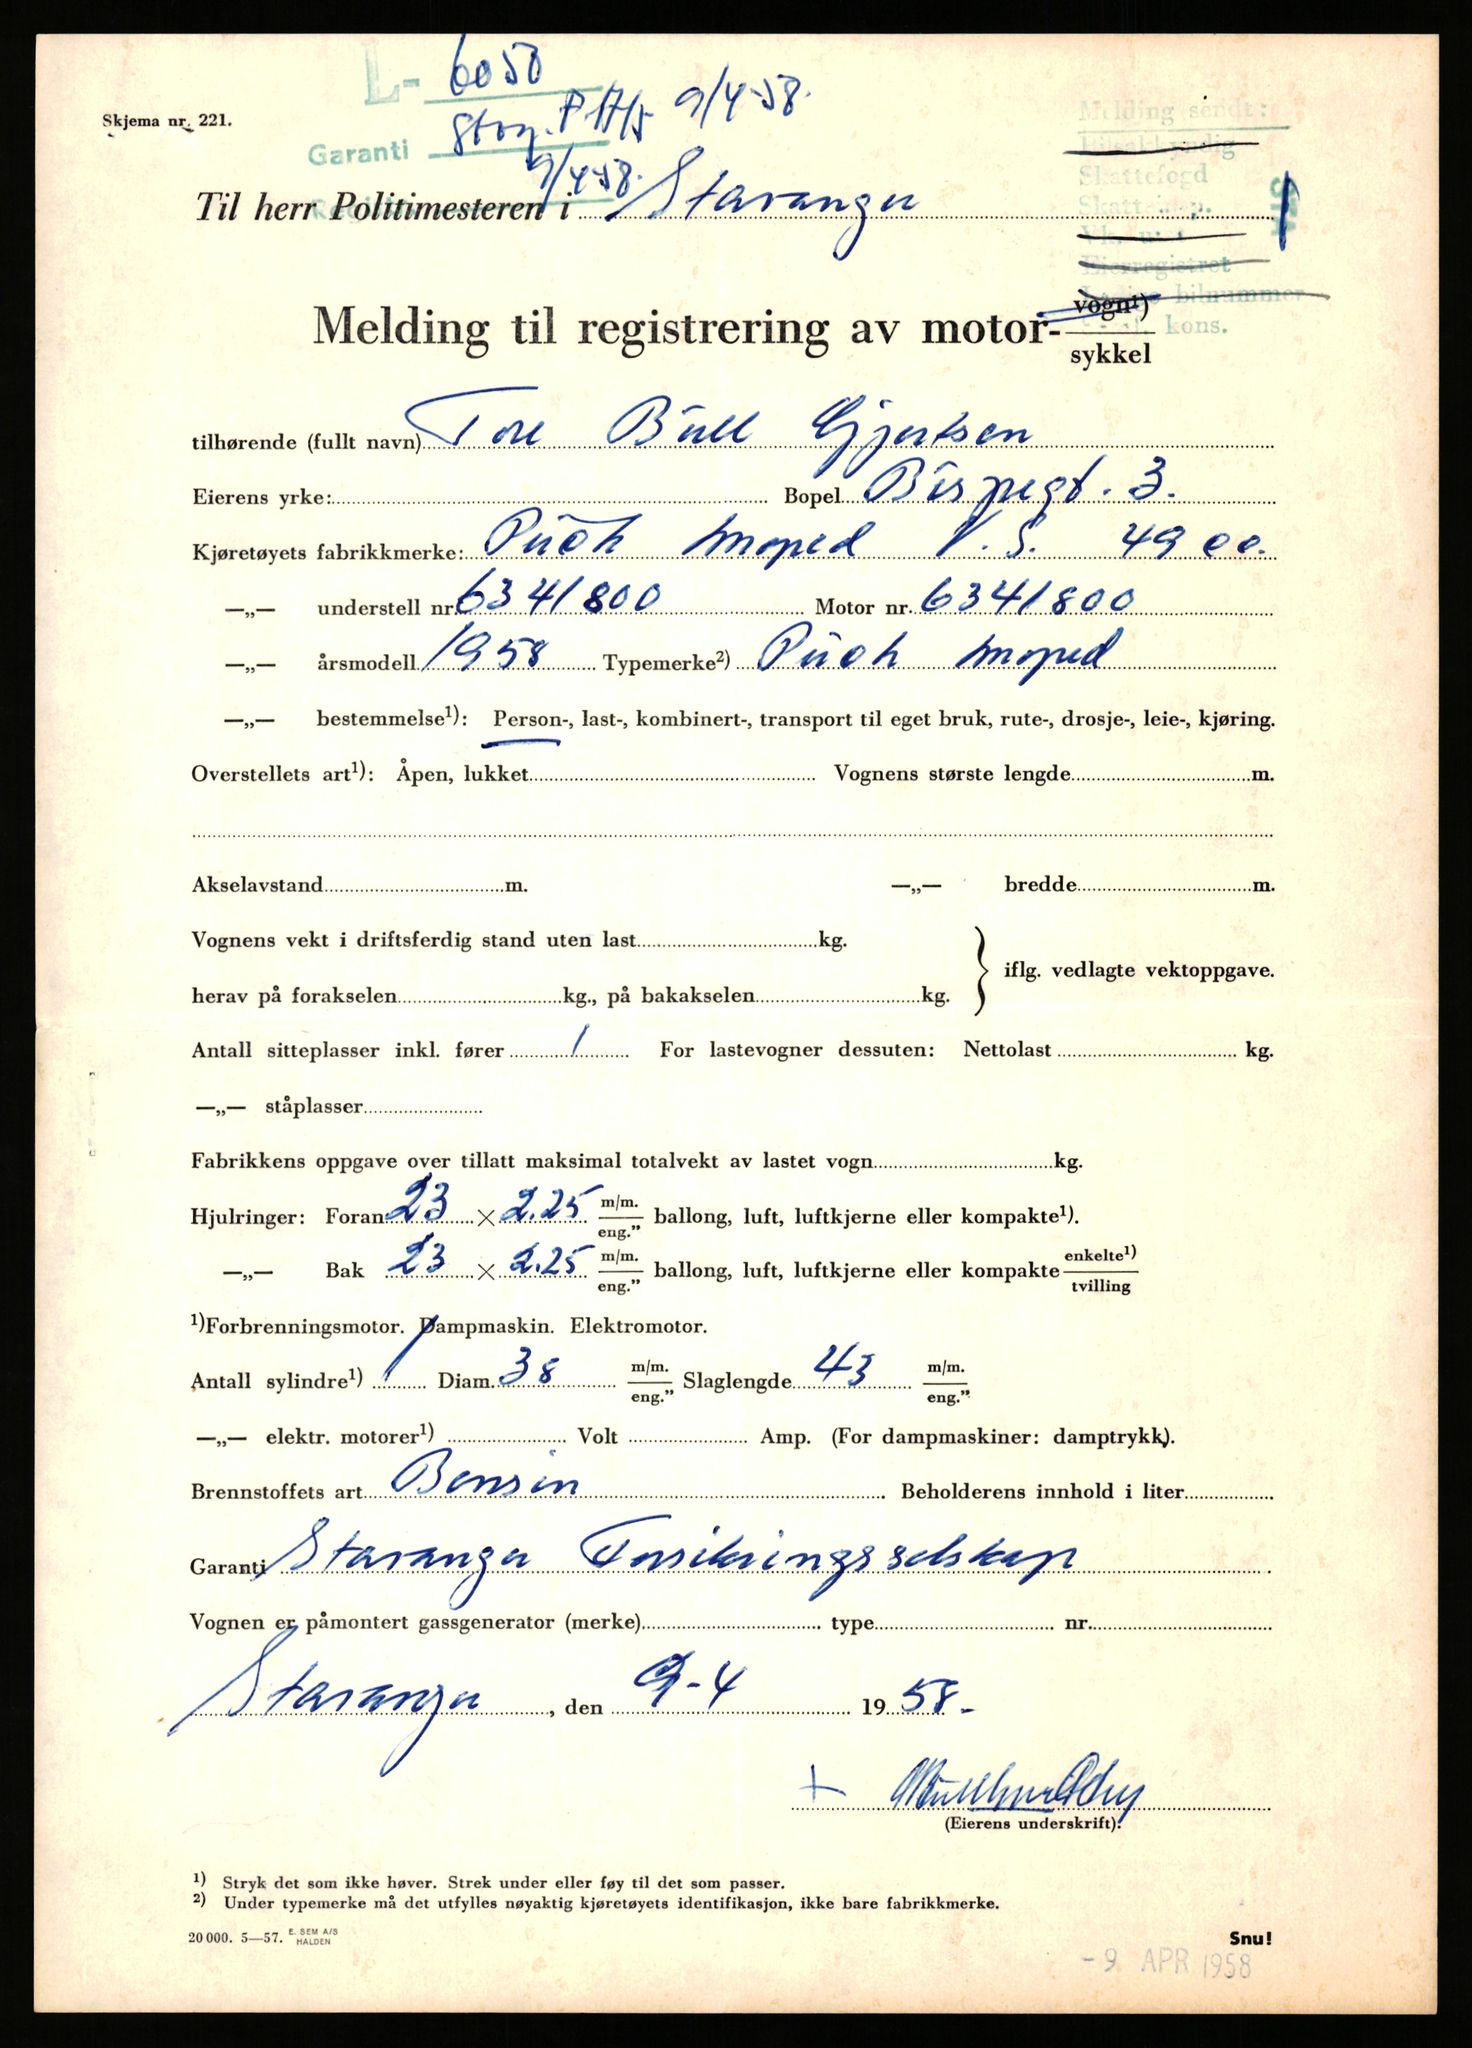 L- 6050
Skjema nr. 221.
Garanti Stvg. P 17/5 9/4-58.
9/4-58.
Melding sendt:
Bilsakkyndig
Skattefogd
Til herr Politimesteren i Stavanger
Eierregistret
bilnummer
kons.
Melding til registrering av motor- vogn¹) / sykkel
tilhørende (fullt navn) Tore Bull Gjertsen
Eierens yrke: Bopel Bispegt. 3.
Kjøretøyets fabrikkmerke: Puch moped V.S. 49 cc.
—„— understell nr. 6341800 Motor nr. 6341800
—„— årsmodell 1958 Typemerke²) Puch moped
—„— bestemmelse¹): Person-, last-, kombinert-, transport til eget bruk, rute-, drosje-, leie-, kjøring.
Overstellets art¹): Åpen, lukket Vognens største lengde m.
Akselavstand m. —„— bredde m.
Vognens vekt i driftsferdig stand uten last kg.
iflg. vedlagte vektoppgave.
herav på forakselen kg., på bakakselen kg.
Antall sitteplasser inkl. fører 1 For lastevogner dessuten: Nettolast kg.
—„— ståplasser
Fabrikkens oppgave over tillatt maksimal totalvekt av lastet vogn kg.
Hjulringer: Foran 23 × 2.25 m/m. / eng.” ballong, luft, luftkjerne eller kompakte¹).
—„— Bak 23 × 2.25 m/m. / eng.” ballong, luft, luftkjerne eller kompakte enkelte¹) / tvilling
¹)Forbrenningsmotor. Dampmaskin. Elektromotor.
Antall sylindre¹) 1 Diam. 38 m/m. / eng.” Slaglengde 43 m/m. / eng.”
—„— elektr. motorer¹) Volt Amp. (For dampmaskiner: damptrykk).
Brennstoffets art Bensin Beholderens innhold i liter
Garanti Stavanger Forsikringsselskap
Vognen er påmontert gassgenerator (merke) type nr.
Stavanger, den 9-4 1958.
(Eierens underskrift).
¹) Stryk det som ikke høver. Strek under eller føy til det som passer.
²) Under typemerke må det utfylles nøyaktig kjøretøyets identifikasjon, ikke bare fabrikkmerke.
20 000. 5—57. E. SEM A/S HALDEN
Snu!
-9 APR 1958